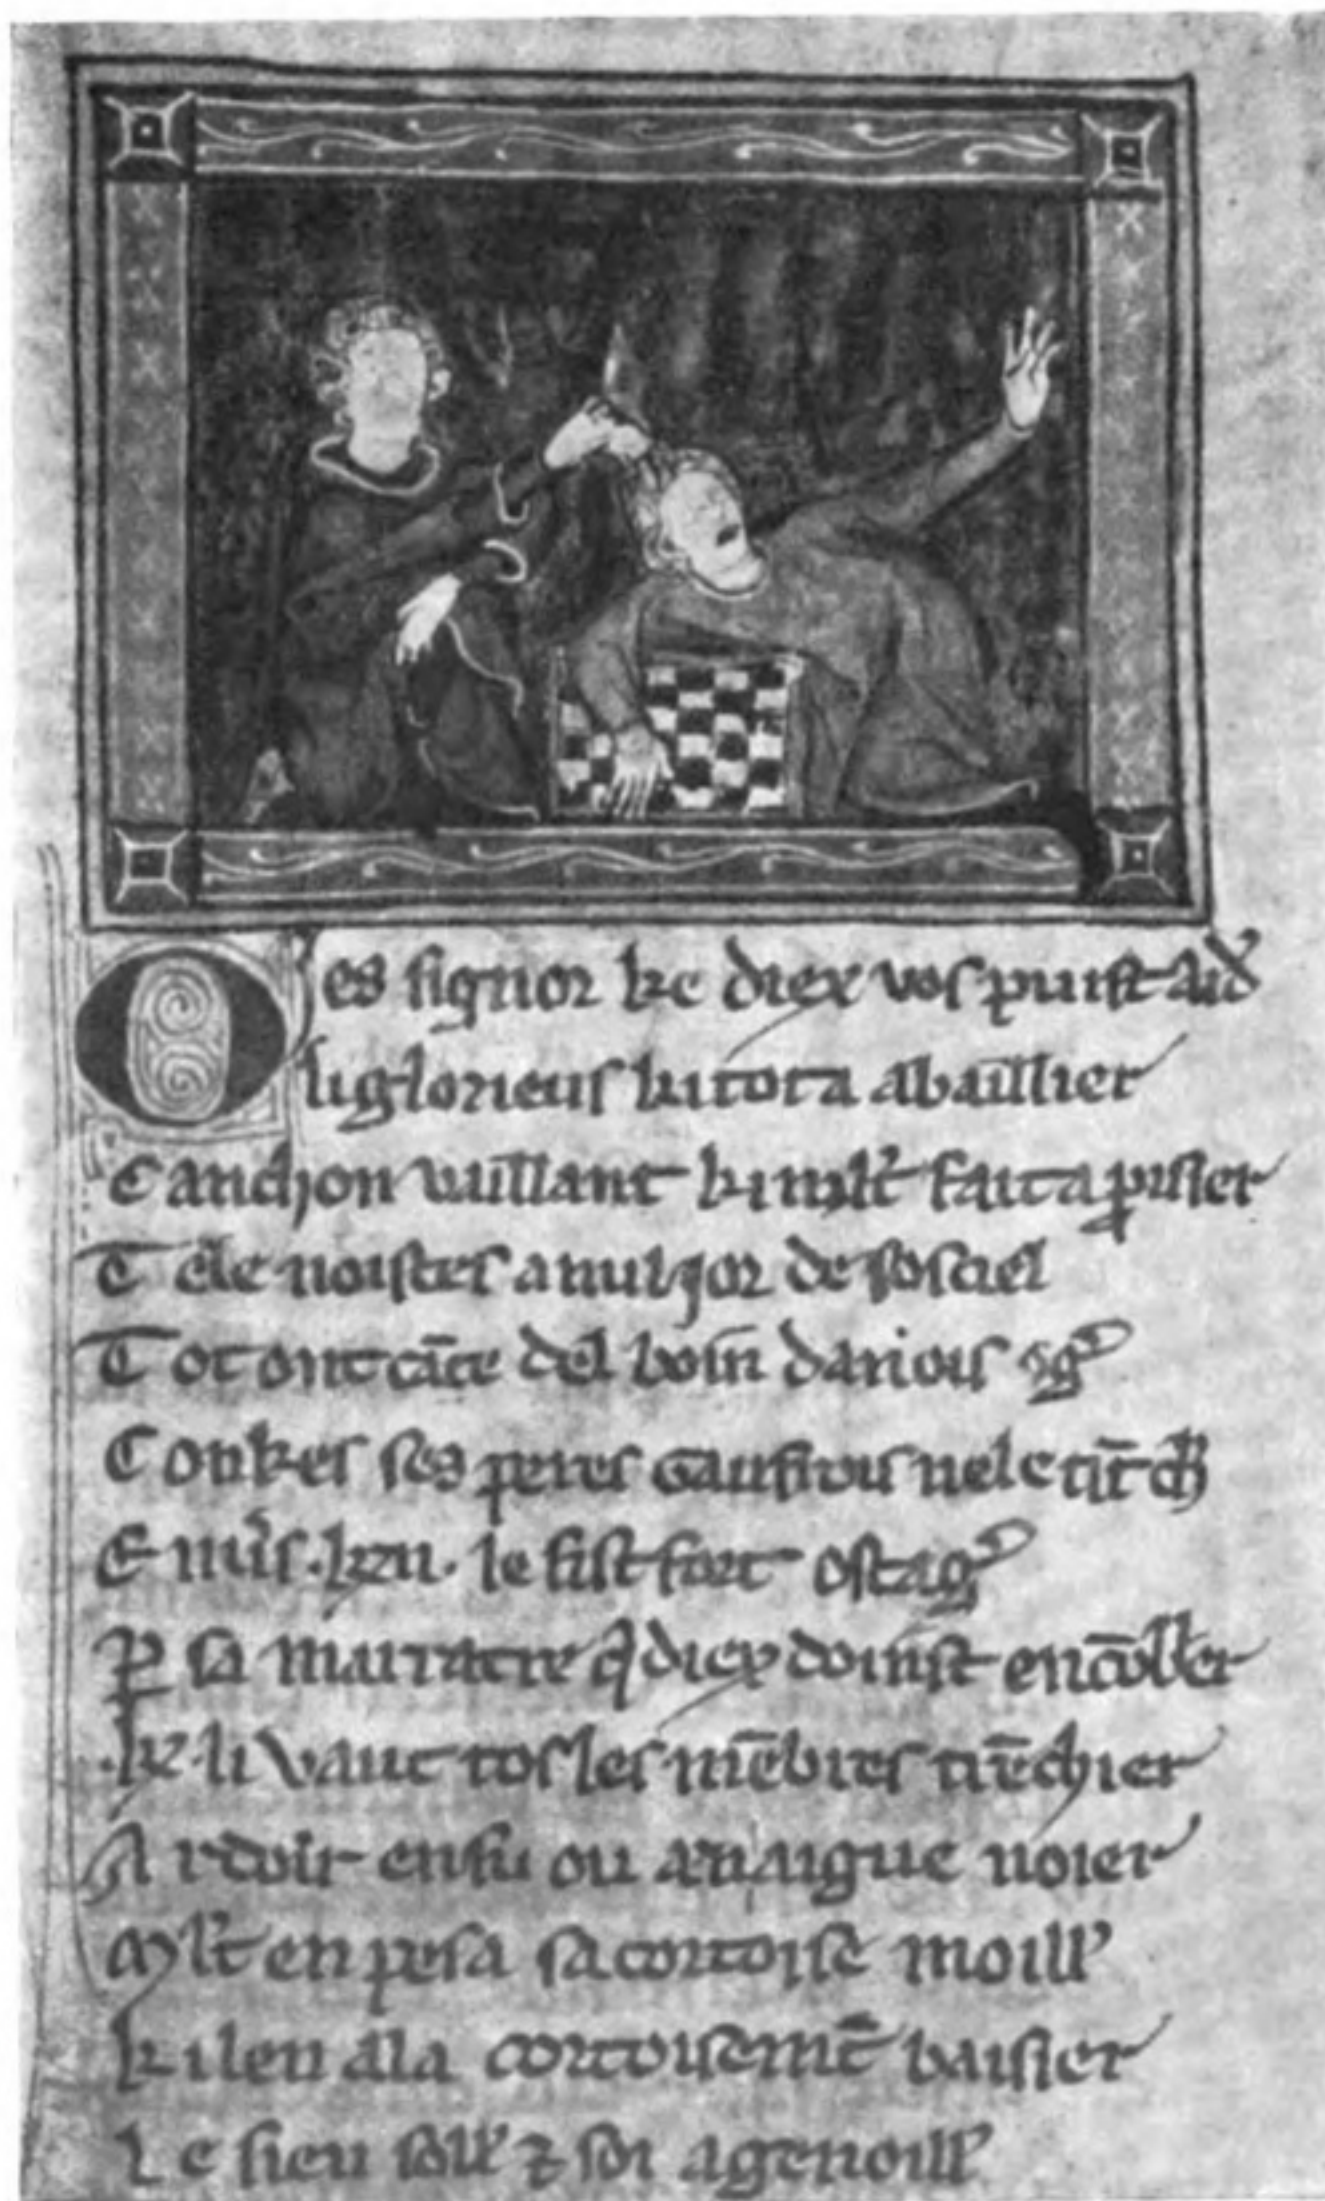 Oes signor ke diex vos puist aid'
li glorieus ki tot a a baillier
Canchon vaillant ki mlt fait a prisier
Tele noistes a nul jor desos ciel
Tot ont cāte del boin danois og'
Conkes ses peres Gaufrois nel e tīt ch'
Enꝰs .kn. le fist fort ostag'
P sa marratre q diex doinst encōbrer
.k. li vaut tos les mēbres trēchier
Ardoir en fu ou en aigue noier
Mlt en pesa sa cortoise moill'
ki len ala cortoisemt baisier
Le sieu soll' ⁊ soi agenoill'